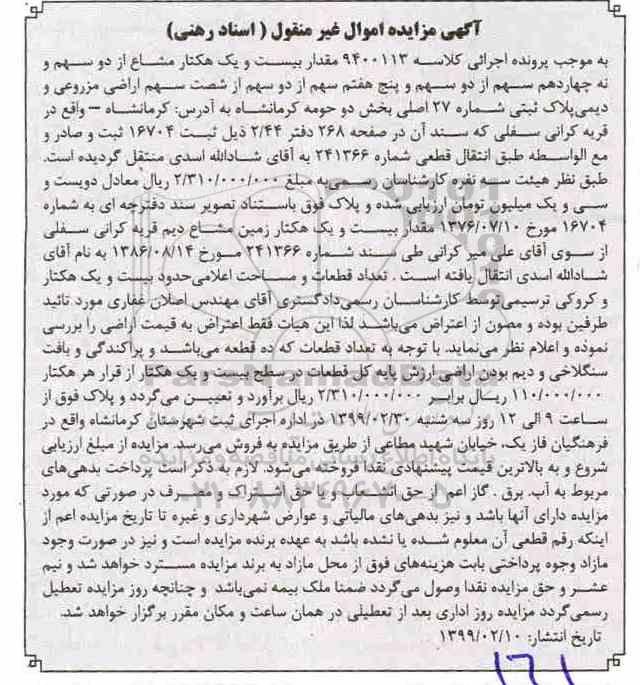 آگهی مزایده اموال غیر منقول ( اسناد رهنی)
به موجب پرونده اجرائی کلاسه ۹۴۰۰۱۱۳ مقدار بیست و یک هکتار مشاع از دو سهم و
نه چهاردهم سهم از دو سهم و پنج هفتم سهم از دو سهم از شصت سهم اراضی مزروعی و
دیمی‌پلاک ثبتی شماره ۲۷ اصلی بخش دو حومه کرمانشاه به آدرس: کرمانشاه – واقع در
قریه کرانی سفلی که سند آن در صفحه ۲۶۸ دفتر ۲/۴۴ ذیل ثبت ۱۶۷۰۴ ثبت و صادر و
مع الواسطه طبق انتقال قطعی شماره ۲۴۱۳۶۶ به آقای شادالله اسدی منتقل گردیده است.
طبق نظر هیئت سه نفره کارشناسان رسمی‌به مبلغ ۲/۳۱۰/۰۰۰/۰۰۰ ریال معادل دویست و
سی و یک میلیون تومان ارزیابی شده و پلاک فوق باستناد تصویر سند دفترچه ای به شماره
۱۶۷۰۴ مورخ ۱۳۷۶/۰۷/۱۰ مقدار بیست و یک هکتار زمین مشاع دیم قریه کرانی سفلی
از سوی آقای علی میر کرانی طی سند شماره ۲۴۱۳۶۶ مورخ ۱۳۸۶/۰۸/۱۴ به نام آقای
شادالله اسدی انتقال یافته است . تعداد قطعات و مساحت اعلامی‌حدود بیست و یک هکتار
و کروکی ترسیمی‌توسط کارشناسان رسمی‌دادگستری آقای مهندس اصلان غفاری مورد تائید
طرفین بوده و مصون از اعتراض می‌باشد لذا این هیات فقط اعتراض به قیمت اراضی را بررسی
نموده و اعلام نظر می‌نماید. با توجه به تعداد قطعات که ده قطعه می‌باشد و پراکندگی و بافت
سنگلاخی و دیم بودن اراضی ارزش پایه کل قطعات در سطح بیست و یک هکتار از قرار هر هکتار
۱۱۰/۰۰۰/۰۰۰ ریال برابر ۲/۳۱۰/۰۰۰/۰۰۰ ریال برآورد و تعیین می‌گردد و پلاک فوق از
ساعت ۹ الی ۱۲ روز سه شنبه ۱۳۹۹/۰۲/۳۰ در اداره اجرای ثبت شهرستان کرمانشاه واقع در
فرهنگیان فاز یک، خیابان شهید مطاعی از طریق مزایده به فروش می‌رسد. مزایده از مبلغ ارزیابی
شروع و به بالاترین قیمت پیشنهادی نقدا فروخته می‌شود. لازم به ذکر است پرداخت بدهی‌های
مربوط به آب. برق . گاز اعم از حق انشعاب و یا حق اشتراک و مصرف در صورتی که مورد
مزایده دارای آنها باشد و نیز بدهی‌های مالیاتی و عوارض شهرداری و غیره تا تاریخ مزایده اعم از
اینکه رقم قطعی آن معلوم شده یا نشده باشد به عهده برنده مزایده است و نیز در صورت وجود
مازاد وجوه پرداختی بابت هزینه‌های فوق از محل مازاد به برند مزایده مسترد خواهد شد و نیم
عشر و حق مزایده نقدا وصول می‌گردد ضمنا ملک بیمه نمی‌باشد و چنانچه روز مزایده تعطیل
رسمی‌گردد مزایده روز اداری بعد از تعطیلی در همان ساعت و مکان مقرر برگزار خواهد شد.
تاریخ انتشار: ۱۳۹۹/۰۲/۱۰
۱۶۱
ParsNamadData
پایگاه اطلاع رسانی مناقصه و مزایده
۰۲۱-۸۸۳۴۹۶۷۰-۵